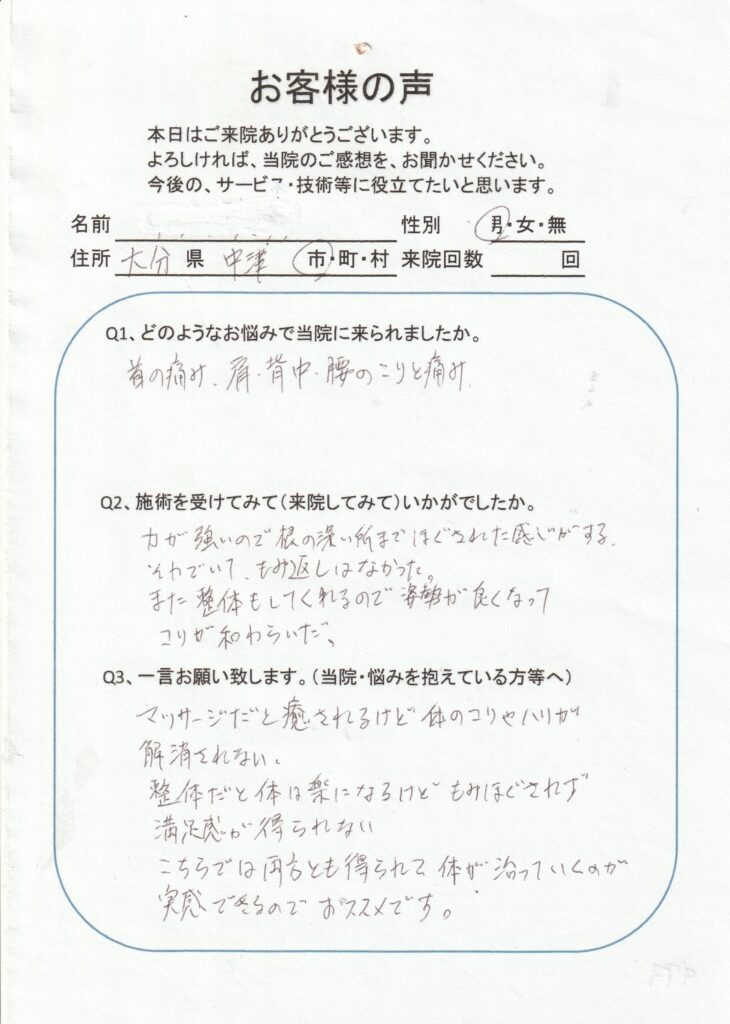 お客様の声
本日はご来院ありがとうございます。
よろしければ、当院のご感想を、お聞かせください。
今後の、サービス・技術等に役立てたいと思います。
名前 性別 男・女・無
住所 大分 県 中津 市・町・村 来院回数 回
Q1、どのようなお悩みで当院に来られましたか。
首の痛み、肩・背中・腰のこりと痛み
Q2、施術を受けてみて(来院してみて)いかがでしたか。
力が強いので根の深い所までほぐされた感じがする。
それでいて、もみ返しはなかった。
また整体もしてくれるので姿勢が良くなって
コリが和わらいだ。
Q3、一言お願い致します。(当院・悩みを抱えている方等へ)
マッサージだと癒されるけど体のコリやハリが
解消されない。
整体だと体は楽になるけどもみほぐされず
満足感が得られない
こちらでは両方とも得られて体が治っていくのが
実感できるのでおススメです。